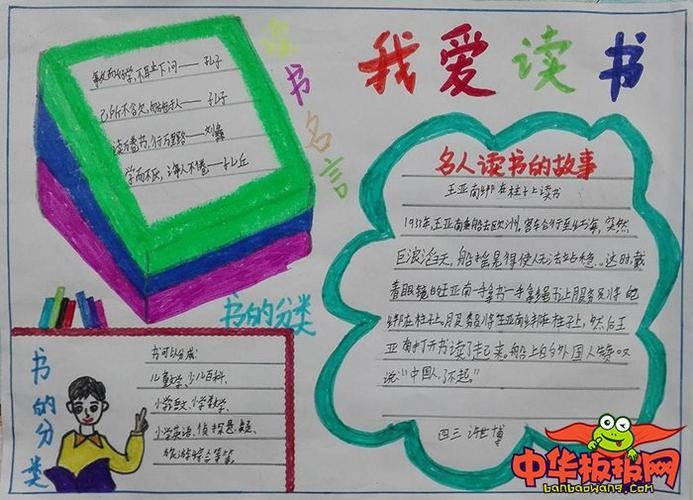 我爱读书
读书名言
敏而好学,不耻下问——孔子
己所不欲,勿施于人——孔子
读万卷书,行万里路——刘彝
学而不厌,诲人不倦——孔丘
书的分类
名人读书的故事
王亚南绑在柱子上读书
1933年,王亚南乘船去欧洲。客车合行至红海,突然
巨浪滔天,船摇晃得使人无法站稳。这时,戴
着眼镜的王亚南一手拿书一手拿绳书上服务员将他
绑在柱子上,服务员将王亚南绑在柱子上,然后王
亚南打开书读了走来。船上的外国人赞叹
说"中国人,了不起。"
四三 许世博
书的分类
书可以分成:
儿童文学、少儿百科、
小学语文、小学数学、
小学英语、侦探悬疑、
旅游综合等等
中华板报网
banbaowang.com